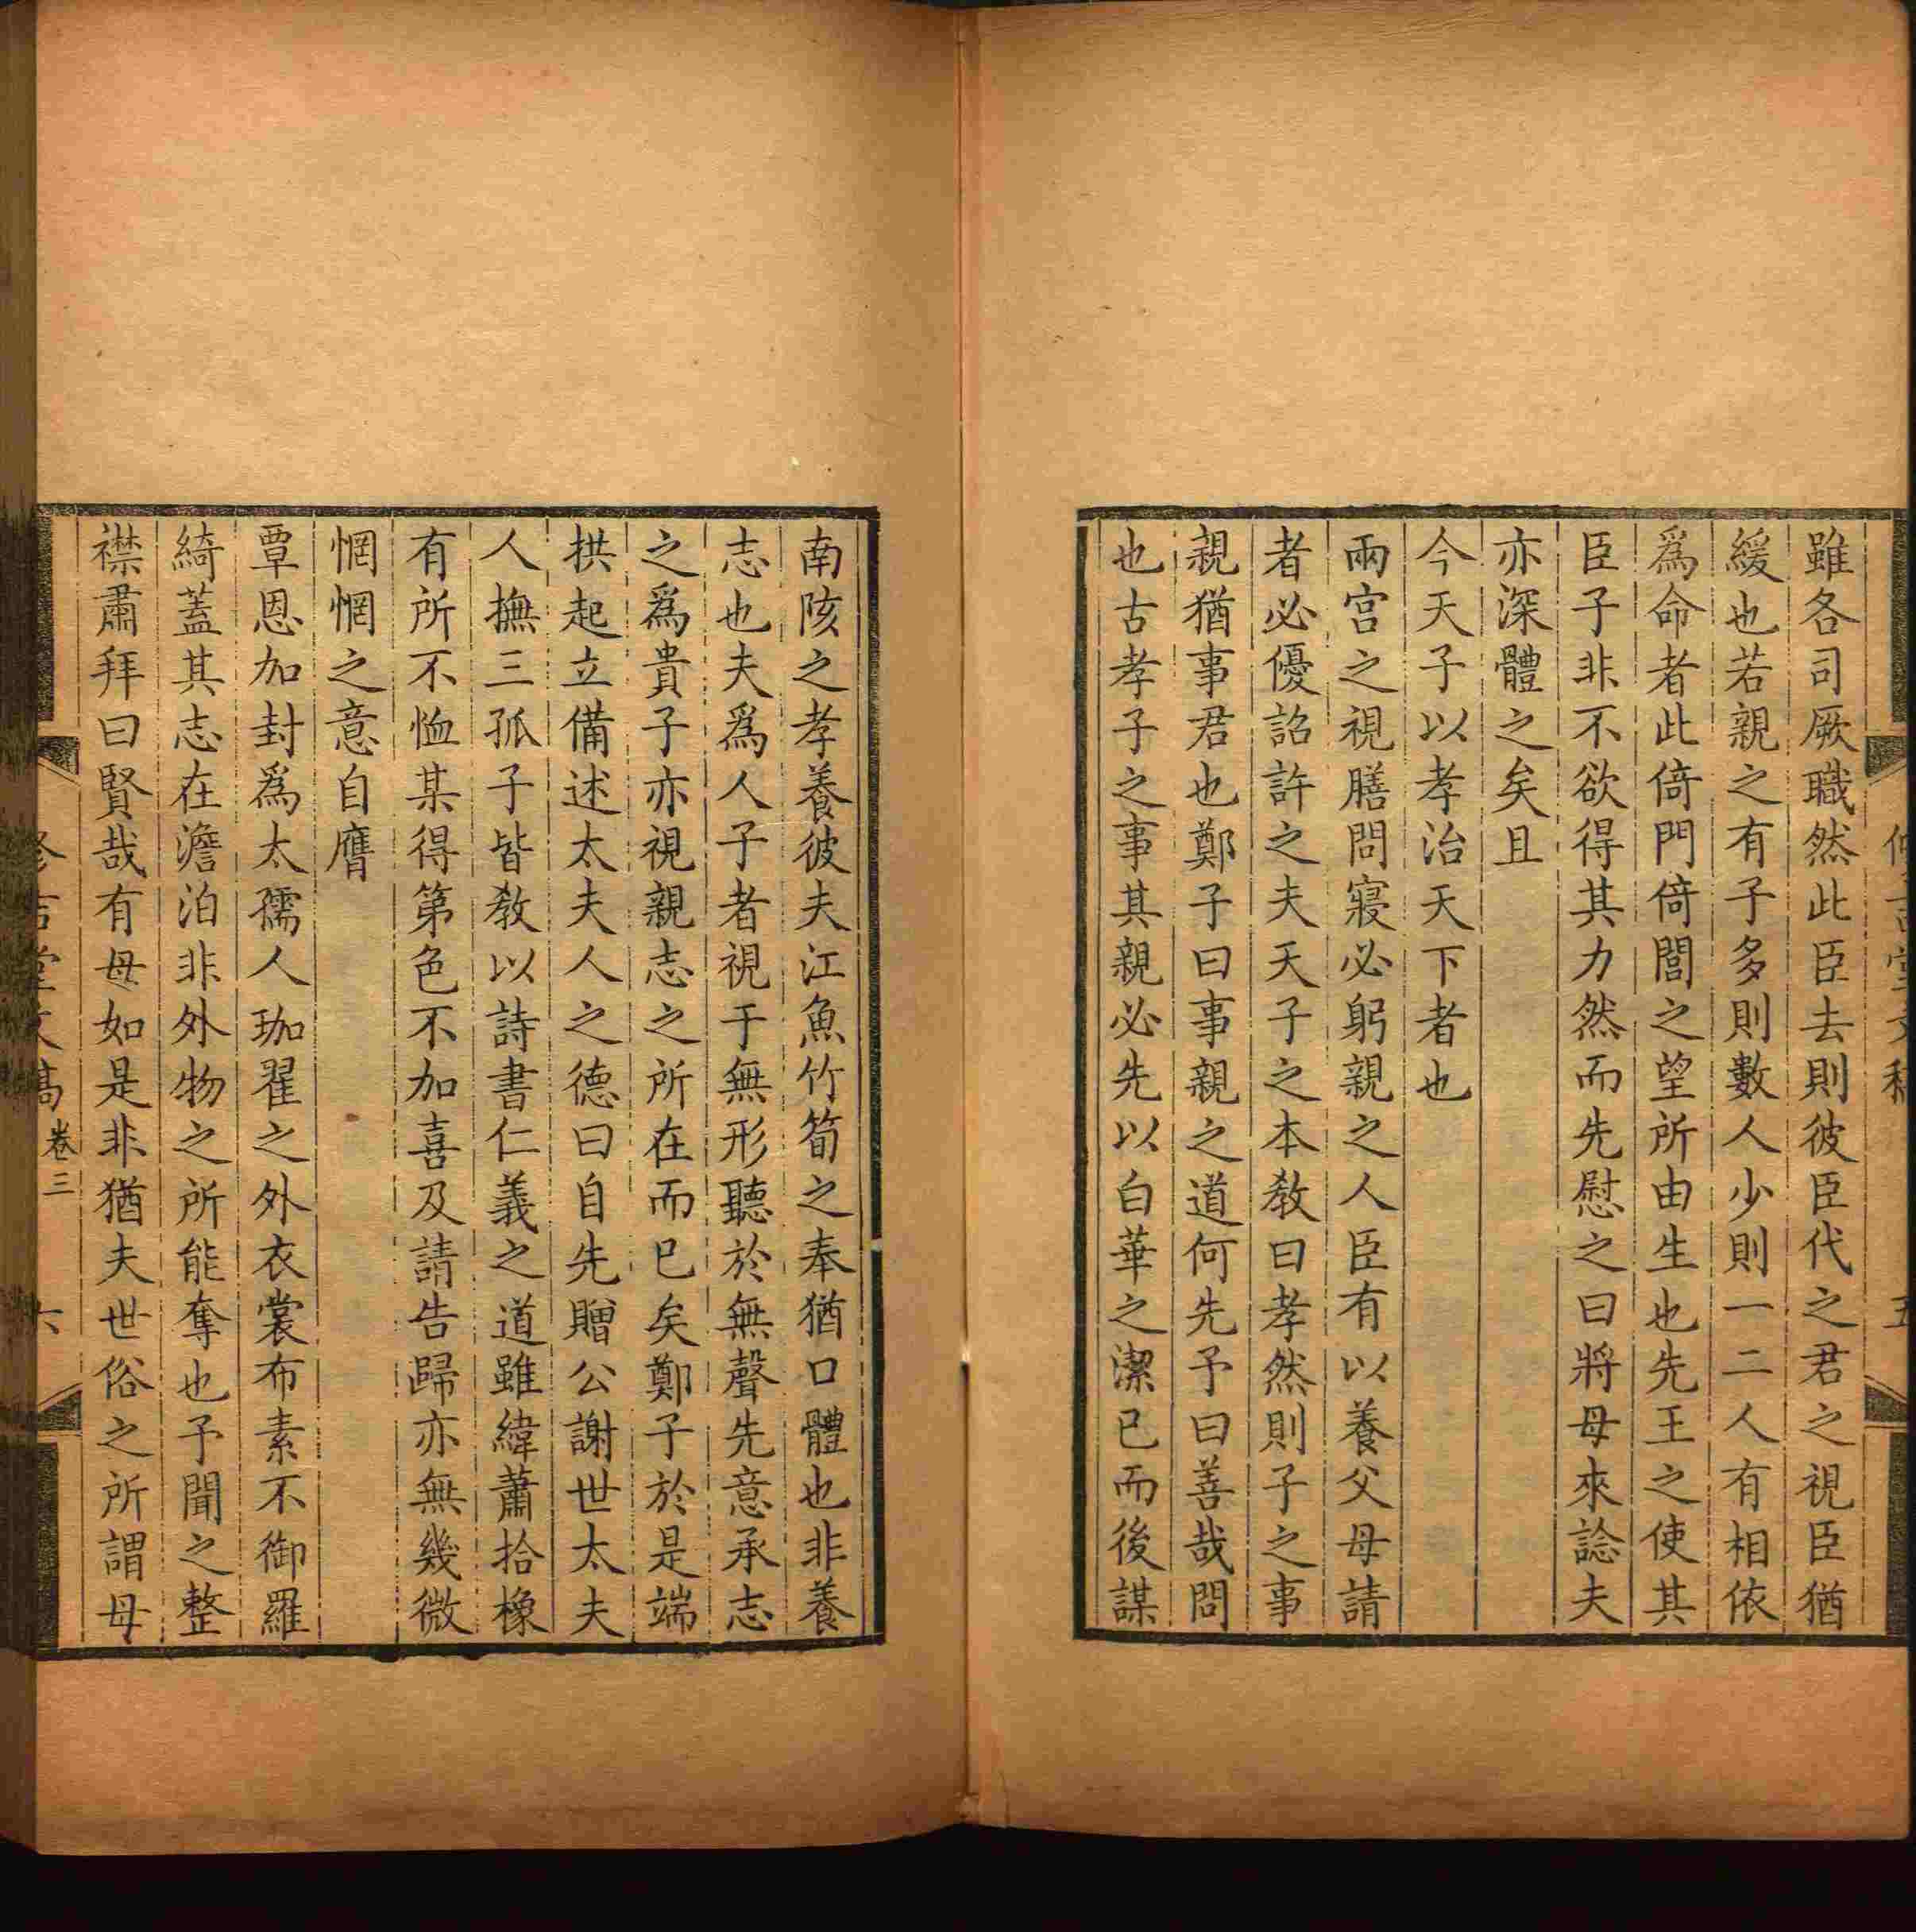 雖各司厥職然此臣去則彼臣代之君之視臣猶
緩也若親之有子多則數人少則一二人有相依
爲命者此倚門倚閭之望所由生也先王之使其
臣子非不欲得其力然而先慰之曰將母來諗夫
亦深體之矣且
今天子以孝治天下者也
兩宮之視膳問寢必躬親之人臣有以養父母請
者必優詔許之夫天子之本教曰孝然則子之事
親猶事君也鄭子曰事親之道何先予曰善哉問
也古孝子之事其親必先以白華之潔已而後謀
南陔之孝養彼夫江魚竹筍之奉猶口體也非養
志也夫爲人子者視于無形聽於無聲先意承志
之爲貴子亦視親志之所在而已矣鄭子於是端
拱起立備述太夫人之德曰自先贈公謝世太夫
人撫三孤子皆教以詩書仁義之道雖緯蕭拾橡
有所不恤某得第色不加喜及請告歸亦無幾微
惘惘之意自膺
覃恩加封爲太孺人珈翟之外衣裳布素不御羅
綺蓋其志在澹泊非外物之所能奪也予聞之整
襟肅拜曰賢哉有母如是非猶夫世俗之所謂母
卷三